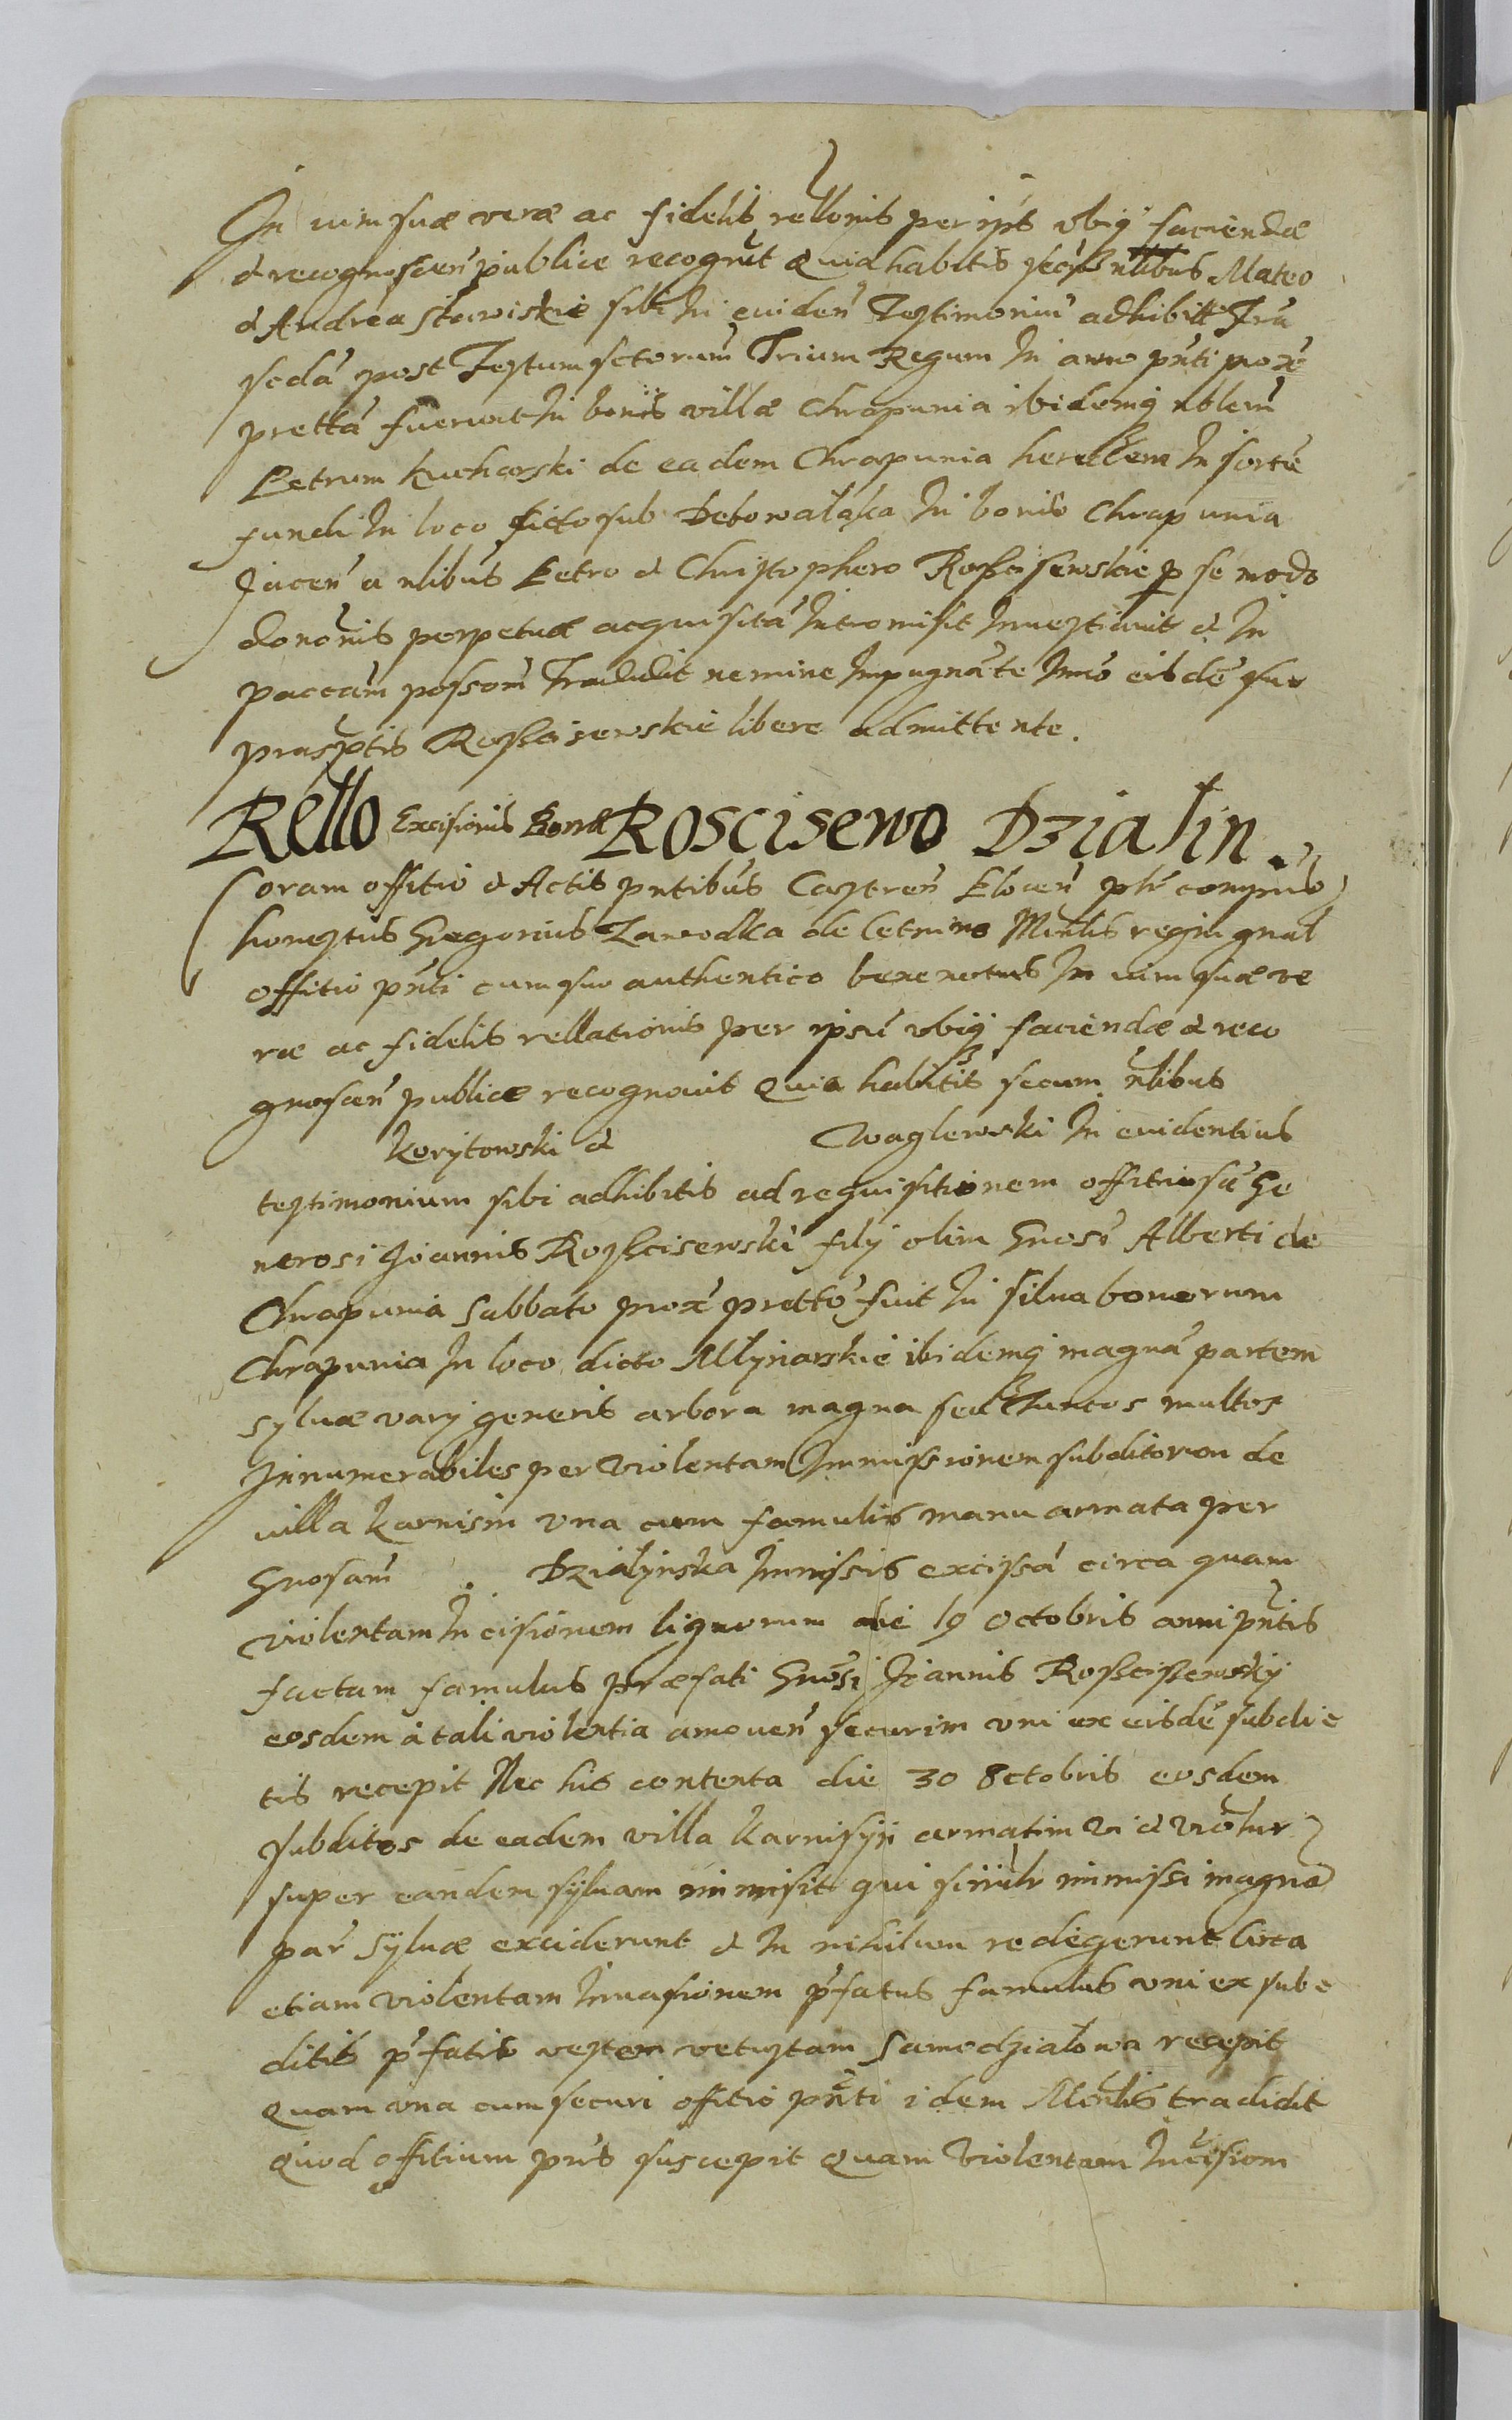 In vim suæ veræ ac fidelis rellonis per ips̄ ubiq faciendæ
& recognoscen̄ publice recogn̄t Quia habitis secū nlibus Mateo
& Andrea Stawiskie sibi In euiden̄ Testimoniū adhibitt Fr̄a
scdā post Festum sctorum Trium Regum In anno pn̄ti prox̄
prettā fuerunt In bonis villæ Chrapunia ibidemq nblem̄
Petrum Kucharski de eadem Chrapunia heredem In sortē
fundi In loco dicto sub Debowalaka In bonis Chrapunia
Jacen̄ a nlibus Petro & Christophero Rosscisewskie p se modo
dononis perpetuæ acquisitā Intromisit Inuestiuit & In
paccam possom̄ Tradidit nemine Impugnāte Imo eisdē
prascptis Rosscisewskie libere admittente.
Rello Excisionis Bonor ROSCISEWO Dzialin.
Coram offitio & Actis pn̄tibus Castren̄ Plocen̄ plr̄ compns
honestus Gregorius Zawodka de Cetnino Min̄lis regius gn̄al
offitio pn̄ti cum suo authentico bene notus In vim suæ ve
ræ ac fidelis rellationis per ipsū ubiq faciendæ & reco
gnoscen̄ publice recognouit Quia habitis secum nlibus
Korytowski & Waglewski In euidentius
testimonium sibi adhibitis ad requisitionem offitiosā Ge
nerosi Joannis Rosscisewski filij olim Gnosi Alberti de
Chrapunia Sabbato prox̄ prettō fuit In silua bonorum
Chrapunia In loco dicto Mlynarskie ibidemq magnā partem
syluæ varij generis arbora magna seu truncos multos
Innumerabiles per violentam Immissionem subditorum de
villa Karnisin vna cum famulis manu armata per
Gnosam̄ . Dzialynska Immissis excissā circa quam
violentam Incisionem lignorum die 19 Octobris anni pn̄tis
factam famulus præfati Gnosi Joannis Rosscissewskij
eosdem à tali violentia amouen̄ securim vni ex eisdē subdi
tis recepit Nec his contenta die 30 8ctobris eosdem
subditos de eadem villa Karnisyn armatim vi & violnr
super eandem syluam immisit qui simili immissi magnā
par̄ Syluæ exciderunt & In nihilum redegerunt Circa
etiam violentam Inuasionem p̄fatus famulus vni ex sub
ditis p̄fatis vestem vetustam Samodzialowa recepit
Quam vna cum securi offitio pn̄ti idem Min̄lis tradidit
Quod offitium pn̄s suscepit Quam violentam Incisiom